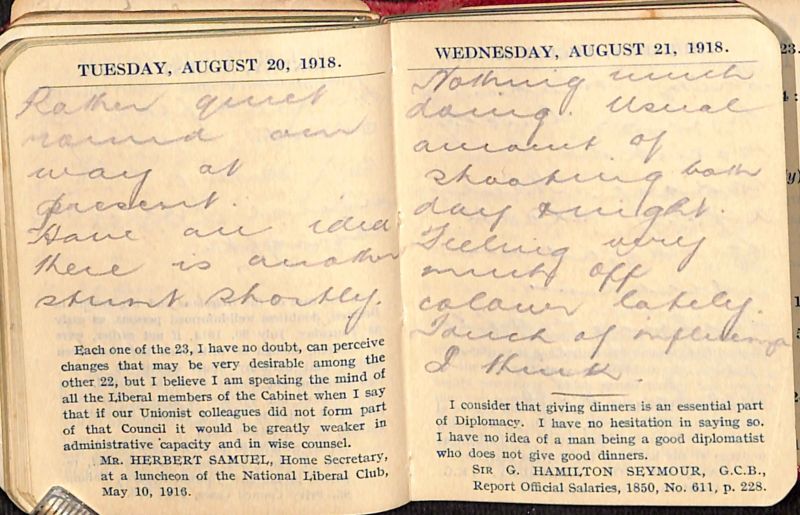 TUESDAY, AUGUST 20, 1918.
Rather quiet
round our
way at
present.
Have an idea
there is another
stunt shortly.
Each one of the 23, I have no doubt, can perceive
changes that may be very desirable among the
other 22, but I believe I am speaking the mind of
all the Liberal members of the Cabinet when I say
that if our Unionist colleagues did not form part
of that Council it would be greatly weaker in
administrative capacity and in wise counsel.
MR. HERBERT SAMUEL, Home Secretary,
at a luncheon of the National Liberal Club,
May 10, 1916.
WEDNESDAY, AUGUST 21, 1918.
Nothing much
doing. Usual
amount of
shooting both
day & night.
Feeling very
much off
colour lately.
Touch of influenza
I think.
I consider that giving dinners is an essential part
of Diplomacy. I have no hesitation in saying so.
I have no idea of a man being a good diplomatist
who does not give good dinners.
SIR G. HAMILTON SEYMOUR, G.C.B.,
Report Official Salaries, 1850, No. 611, p. 228.